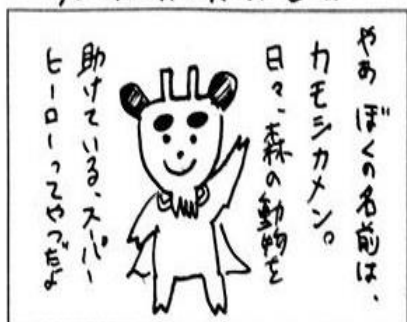 やあ ぼくの名前は、
カモシカメン。
日々、森の動物を
助けている、スーパー
ヒーローってやつだよ